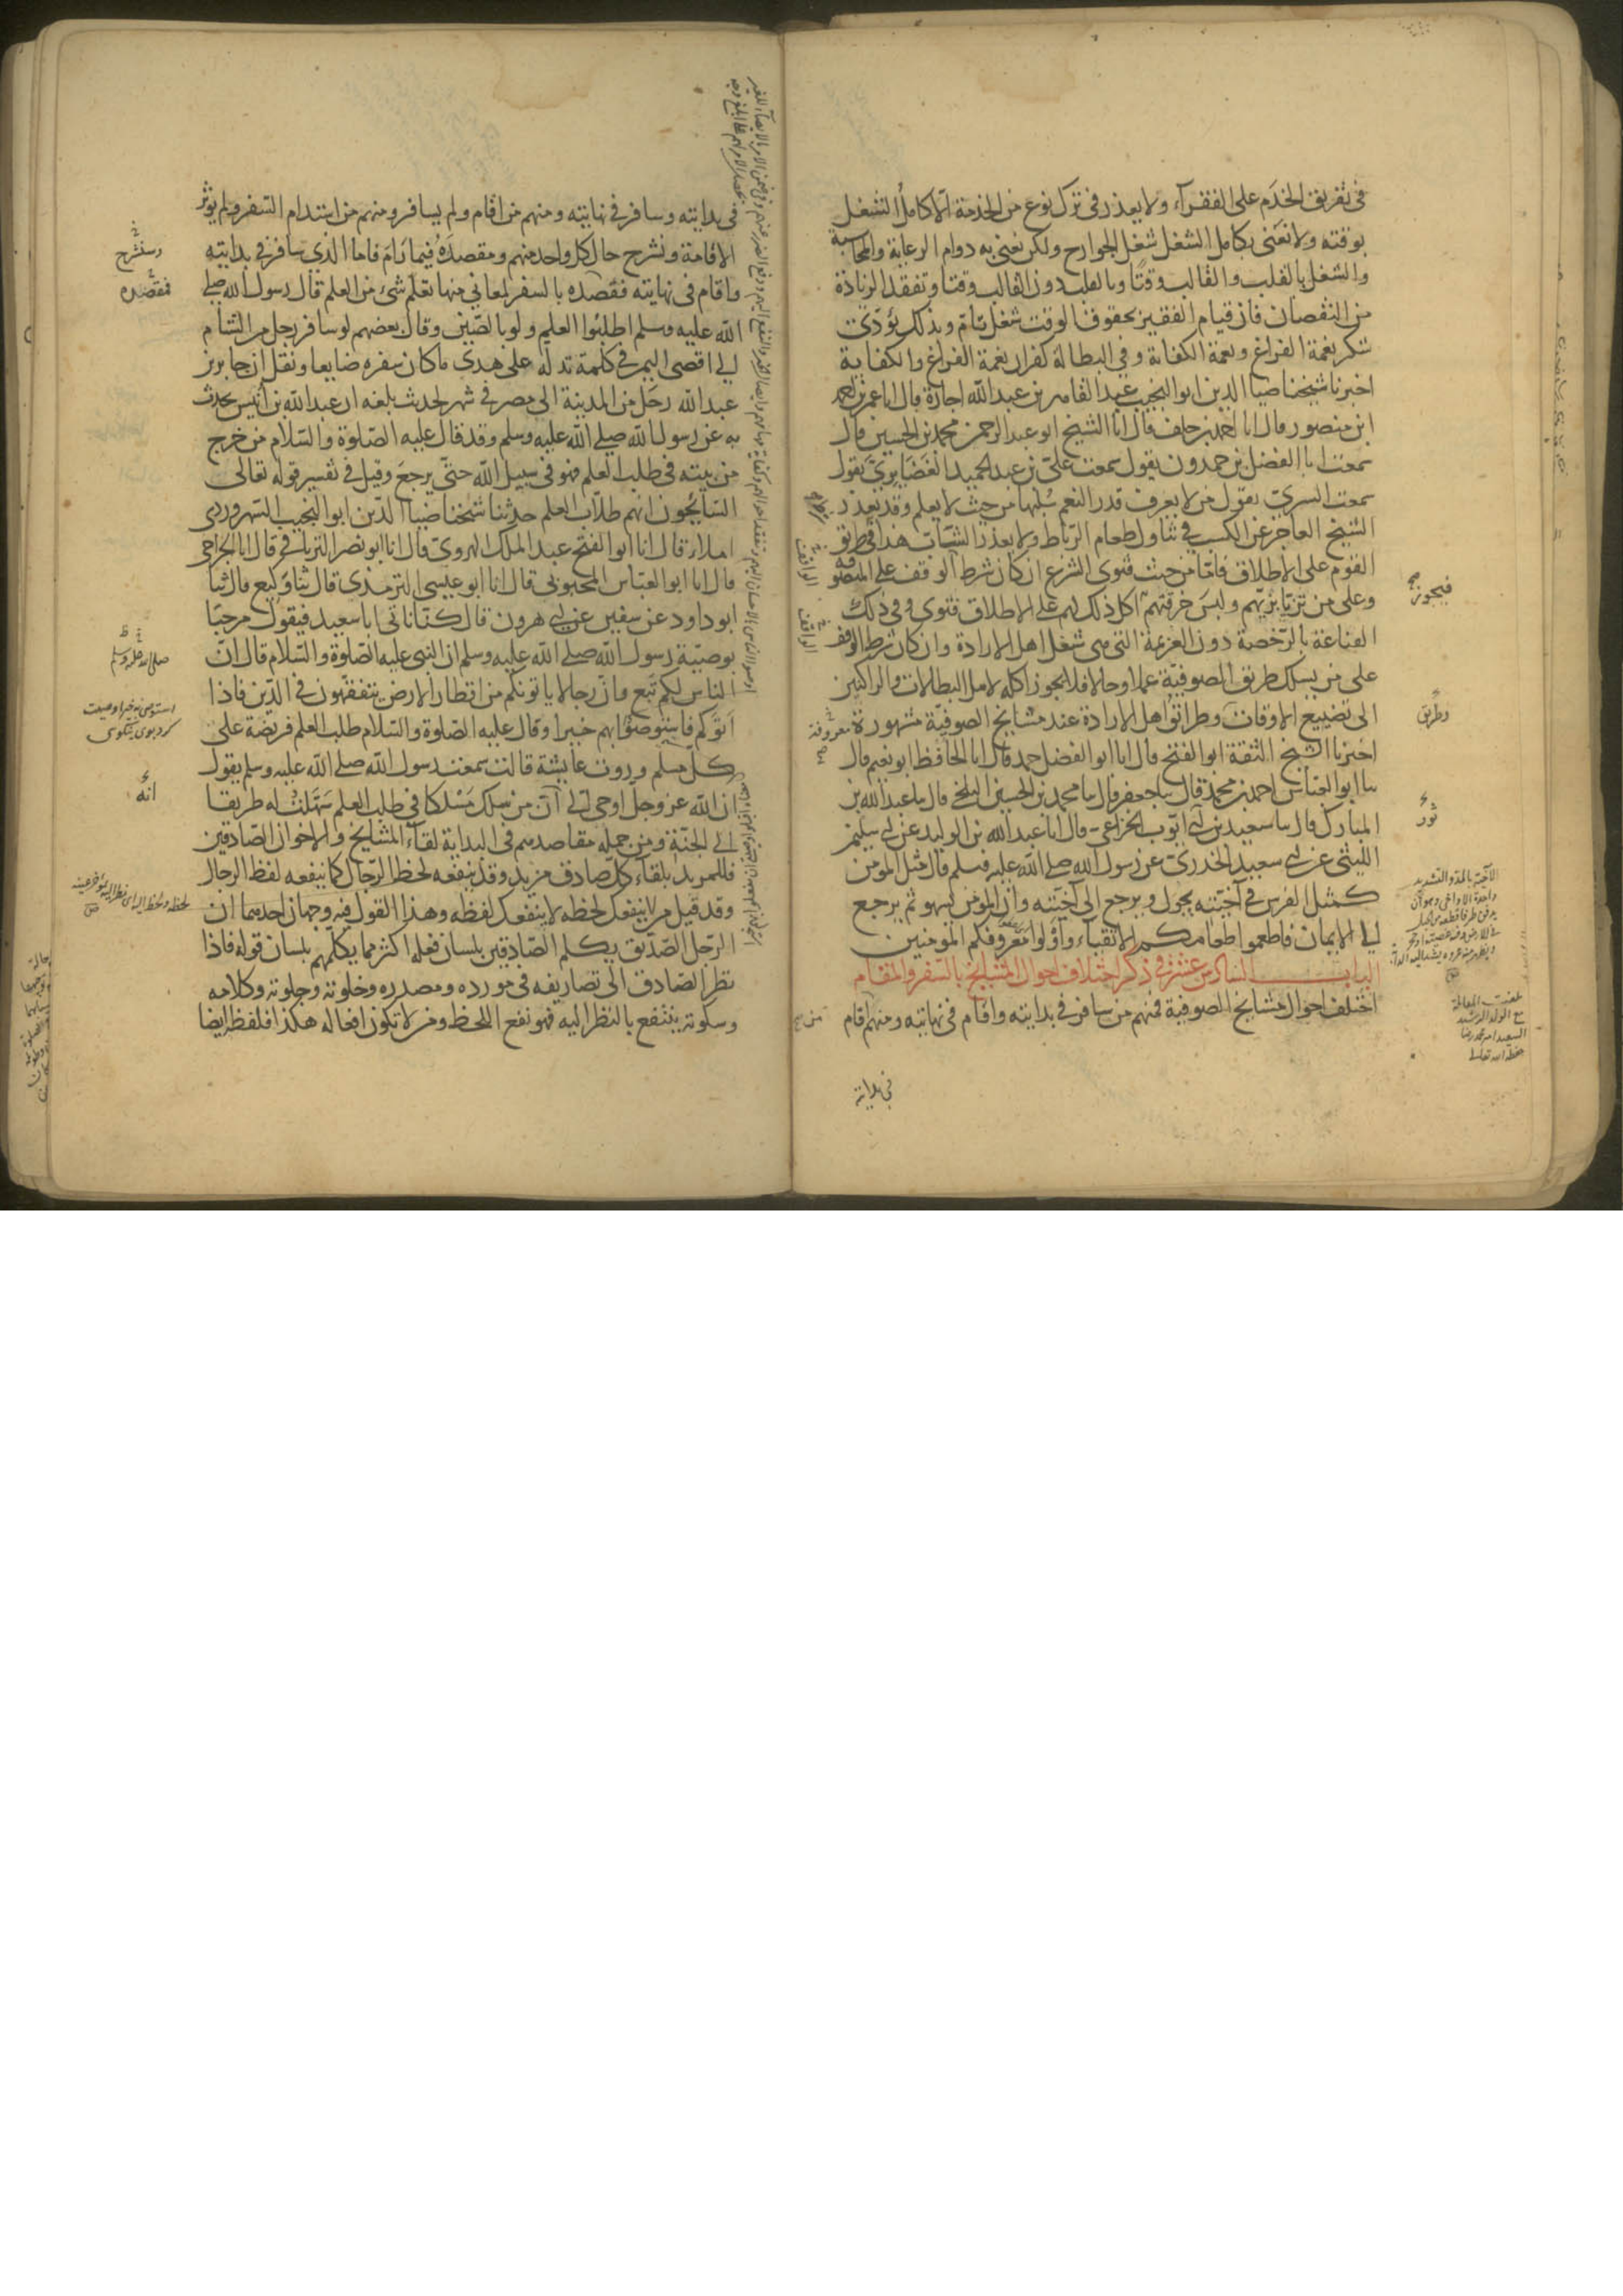 في تفريق الخدم على الفقرآء ولا يعذر في ترك نوع من الخدمة الا كامل الشغل
بوقته ولا نعنى بكامل الشغل شغل الجوارح ولكن نعنى به دوام الرعاية والمحاسبة
والشغل بالقلب والقالب وقتا وبالقلب دون القالب وقتا وتفقد الزيادة
من النقصان فان قيام الفقير بحقوق الوقت شغل تام وبذلك يؤدى
شكر نعمة الفراغ ونعمة الكفاية وفي البطالة كفران نعمة الفراغ والكفاية
اخبرنا شيخنا ضيا الدين ابو النجيب عبد القاهر بن عبد الله اجازة قال انا عمر بن احمد
ابن منصور قال انا احمد بن خلف قال انا الشيخ ابو عبد الرحمن محمد بن الحسين قال
سمعت ابا الفضل بن حمدون يقول سمعت على بن عبد الحميد الغضايرى يقول
سمعت السرى يقول من لا يعرف قدر النعم سلبها من حيث لا يعلم وقد يعذر
الشيخ العاجز عن الكسب في تناول طعام الرباط ولا يعذر الشباب هذا في طريق
القوم على الاطلاق فاما من حيث فتوى الشرع ان كان شرط الوقف على المتصوفة
وعلى من تزيا بزيهم ولبس خرقتهم اكل ذلك لهم على الاطلاق فتوى وفي ذلك
القناعة بالرخصة دون العزيمة التى هى شغل اهل الارادة وان كان شرط الوقف
على من يسلك طريق الصوفية عملا وحالا فلا يجوز اكله لاهل البطالات والراكنين
الى تضييع الاوقات وطرائق اهل الارادة عند مشايخ الصوفية مشهورة
اخبرنا الشيخ الثقة ابو الفتح قال انا ابو الفضل حمد قال انا الحافظ ابو نعيم قال
ثنا ابو العباس احمد بن محمد قال ثنا جعفر قال ثنا محمد بن الحسين البلخى قال ثنا عبد الله بن
المبارك قال ثنا سعيد بن ابى ايوب الخزاعى قال انا عبد الله بن الوليد عن ابى سليمن
الليثى عن ابى سعيد الخدرى عن رسول الله صلى الله عليه وسلم قال مثل المؤمن
كمثل الفرس في آخيته يجول ويرجع الى آخيته وان المؤمن يسهو ثم يرجع
الى الايمان فاطعموا طعامكم الاتقياء وأولوا معروفكم المؤمنين
الباب السادس عشر في ذكر اختلاف احوال المشايخ بالسفر والمقام
اختلف احوال مشايخ الصوفية فمنهم من سافر في بدايته واقام في نهايته ومنهم اقام
في بدايته
فيجوز
وطريق
ثور
معروفة
الواقف
الواقف
من
بلغت المقابلة
مع الولد الرشيد
حفظه الله تعالى
في بدايته وسافر في نهايته ومنهم من اقام ولم يسافر ومنهم من استدام السفر ولم يوثر
الاقامة ونشرح حال كل واحد منهم ومقصده فيما رام فاما الذى سافر في بدايته
واقام في نهايته فقصده بالسفر لمعانى منها تعلم شئ من العلم قال رسول الله صلى
الله عليه وسلم اطلبوا العلم ولو بالصين وقال بعضهم لو سافر رجل من الشام
الى اقصى اليمن في كلمة تدله على هدى ما كان سفره ضايعا ونقل ان جابر بن
عبد الله رحل من المدينة الى مصر في شهر لحديث بلغه ان عبد الله بن أنيس يحدث
به عن رسول الله صلى الله عليه وسلم وقد قال عليه الصلوة والسلام من خرج
من بيته في طلب العلم فهو في سبيل الله حتى يرجع وقيل في تفسير قوله تعالى
السائحون انهم طلاب العلم حدثنا شيخنا ضيا الدين ابو النجيب السهروردى
املاء قال انا ابو الفتح عبد الملك الهروى قال انا ابو نصر الترياقى قال انا الجراحى
قال انا ابو العباس المحبوبى قال انا ابو عيسى الترمذى قال ثنا وكيع قال ثنا
ابو داود عن سفين عن ابى هرون قال كنا ناتى ابا سعيد فيقول مرحبا
بوصية رسول الله صلى الله عليه وسلم ان النبى عليه الصلوة والسلام قال ان
الناس لكم تبع وان رجالا ياتونكم من اقطار الارض يتفقهون في الدين فاذا
اتوكم فاستوصوا بهم خيرا وقال عليه الصلوة والسلام طلب العلم فريضة على
كل مسلم وروت عايشة قالت سمعت رسول الله صلى الله عليه وسلم يقول
ان الله عز وجل اوحى الى ان من سلك مسلكا في طلب العلم سهلت له طريقا
الى الجنة ومن جملة مقاصدهم في البداية لقاء المشايخ والاخوان الصادقين
فللمريد بلقاء كل صادق مزيد وقد ينفعه لحظ الرجال كما ينفعه لفظ الرجال
وقد قيل من لا ينفعك لحظه لا ينفعك لفظه وهذا القول فيه وجهان احدهما ان
الرجل الصديق يكلم الصادقين بلسان فعله اكثر مما يكلمهم بلسان قوله فاذا
نظر الصادق الى تصاريفه في مورده ومصدره وخلوته وجلوته وكلامه
وسكوته ينتفع بالنظر اليه فهو نفع اللحظ ومن لا تكون افعاله هكذا فلفظه ايضا
وسنشرح
فمقصده
صلى الله عليه وسلم
انه